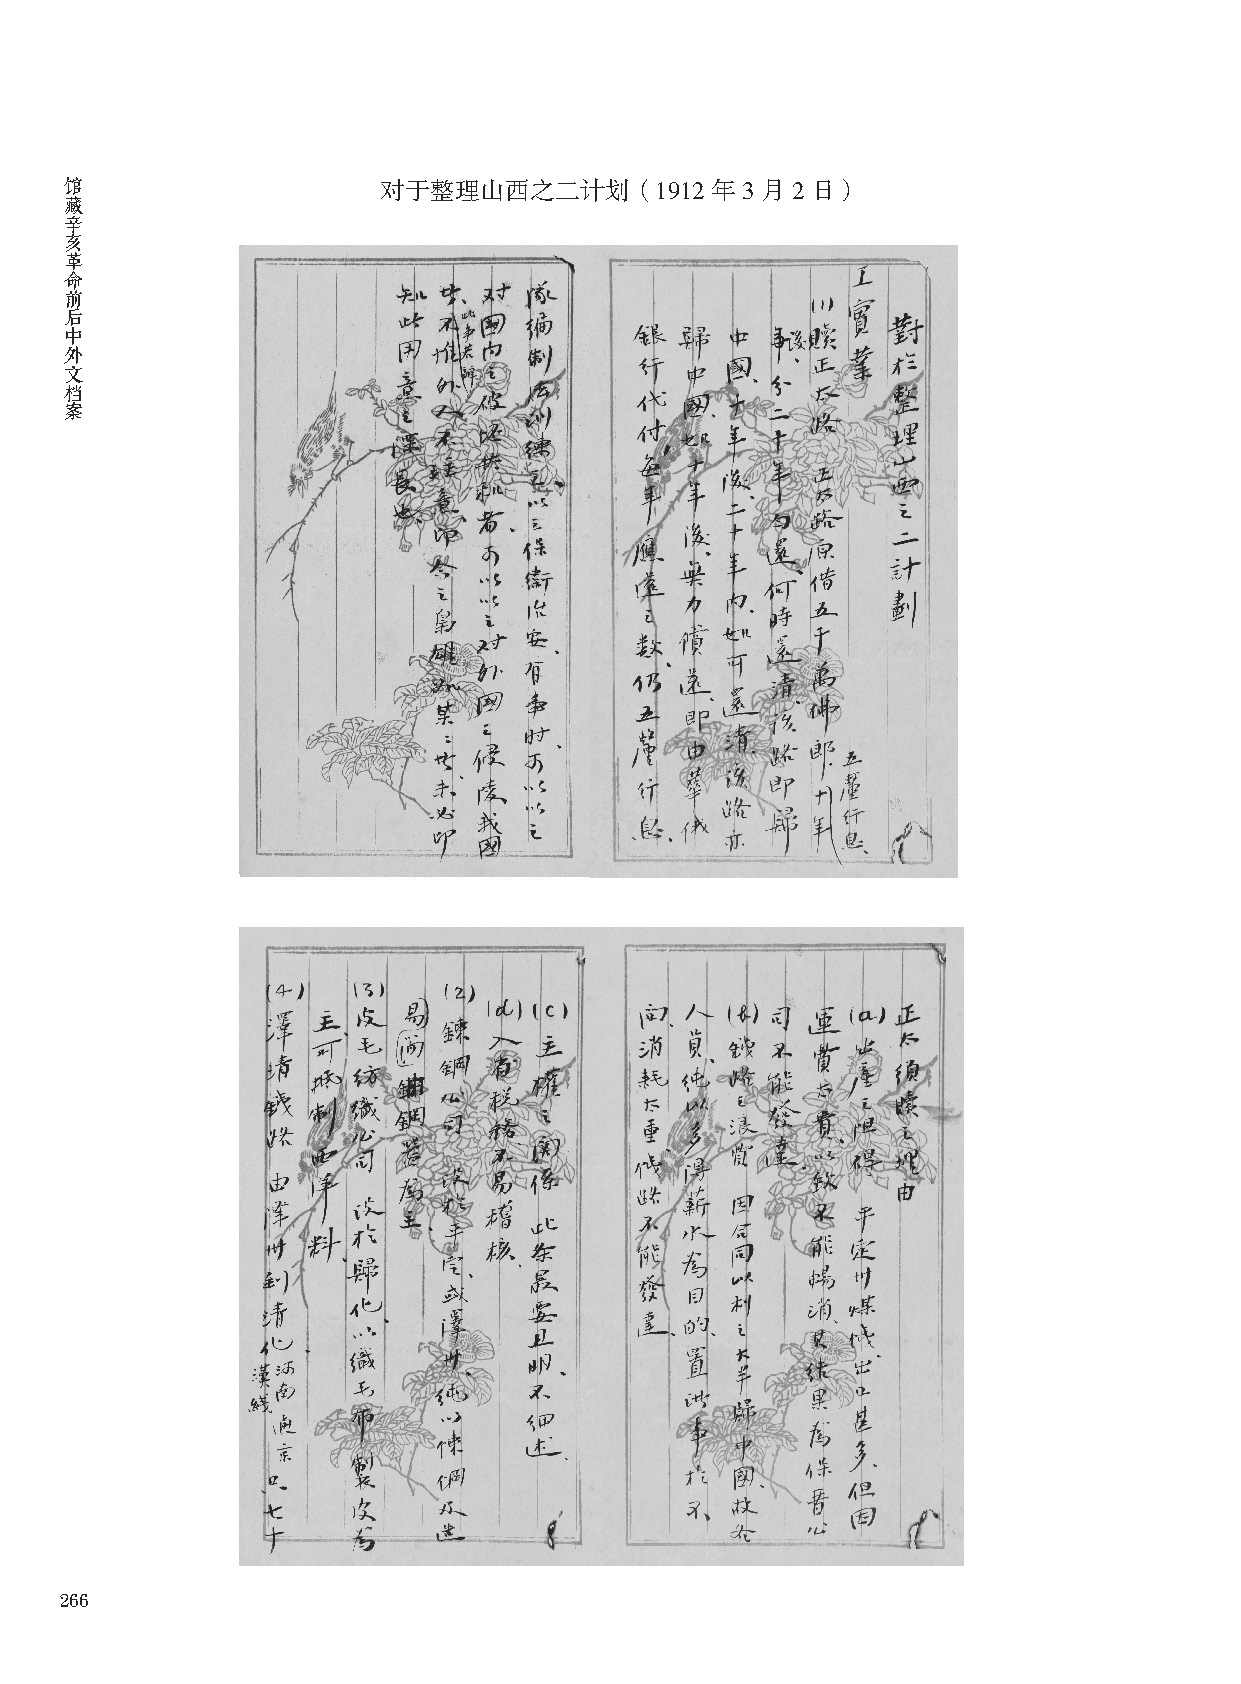 馆藏辛亥革命前后中外文档案
对于整理山西之二计划（1912年3月2日）
對於整理山西之二計劃
工實業
(1)贖正太路 正太路原借五千萬佛郎 五釐行息、十年
後、分二十年勻還、何時還清、該路即歸
中國、十年後、二十年內、如可還清、該路亦
歸中國、如十年後、無力償還、即由華俄
銀行代付、每年應還之數、仍五釐行息、
隊編制法訓練之、以之保衛治安、有事时、可以以之
对國內之破坏共和者、可以以之对外國之侵凌我國
者、此事若辦 不惟外人不注意、即今之梟雄如某某者、未必即
知此用意之深長也、
正太須贖之理由
(a)出產之阻碍 平定州煤鐵、出口甚多、但因
運費太貴、以致不能暢消、其結果為保晋公
司不能發達、
(b)鐵路之浪費 因合同以利之大半歸中國、故各
人員、純以多得薪水為目的、置洪事於不
問、消耗太重、鐵路不能發達、
(c)主權之関係 此条最要且明、不細述、
(d)入省稅務、不易稽核、
(2)鍊鋼公司 设於平定、或澤州、純以煉鋼及造
易 鋼器為主、
(3)皮毛紡織公司 设於歸化、以織毛布製皮為
主、可抵制西洋料、
(4)澤清鐵路 由澤州到清化、河南 通京漢綫 只七十
266